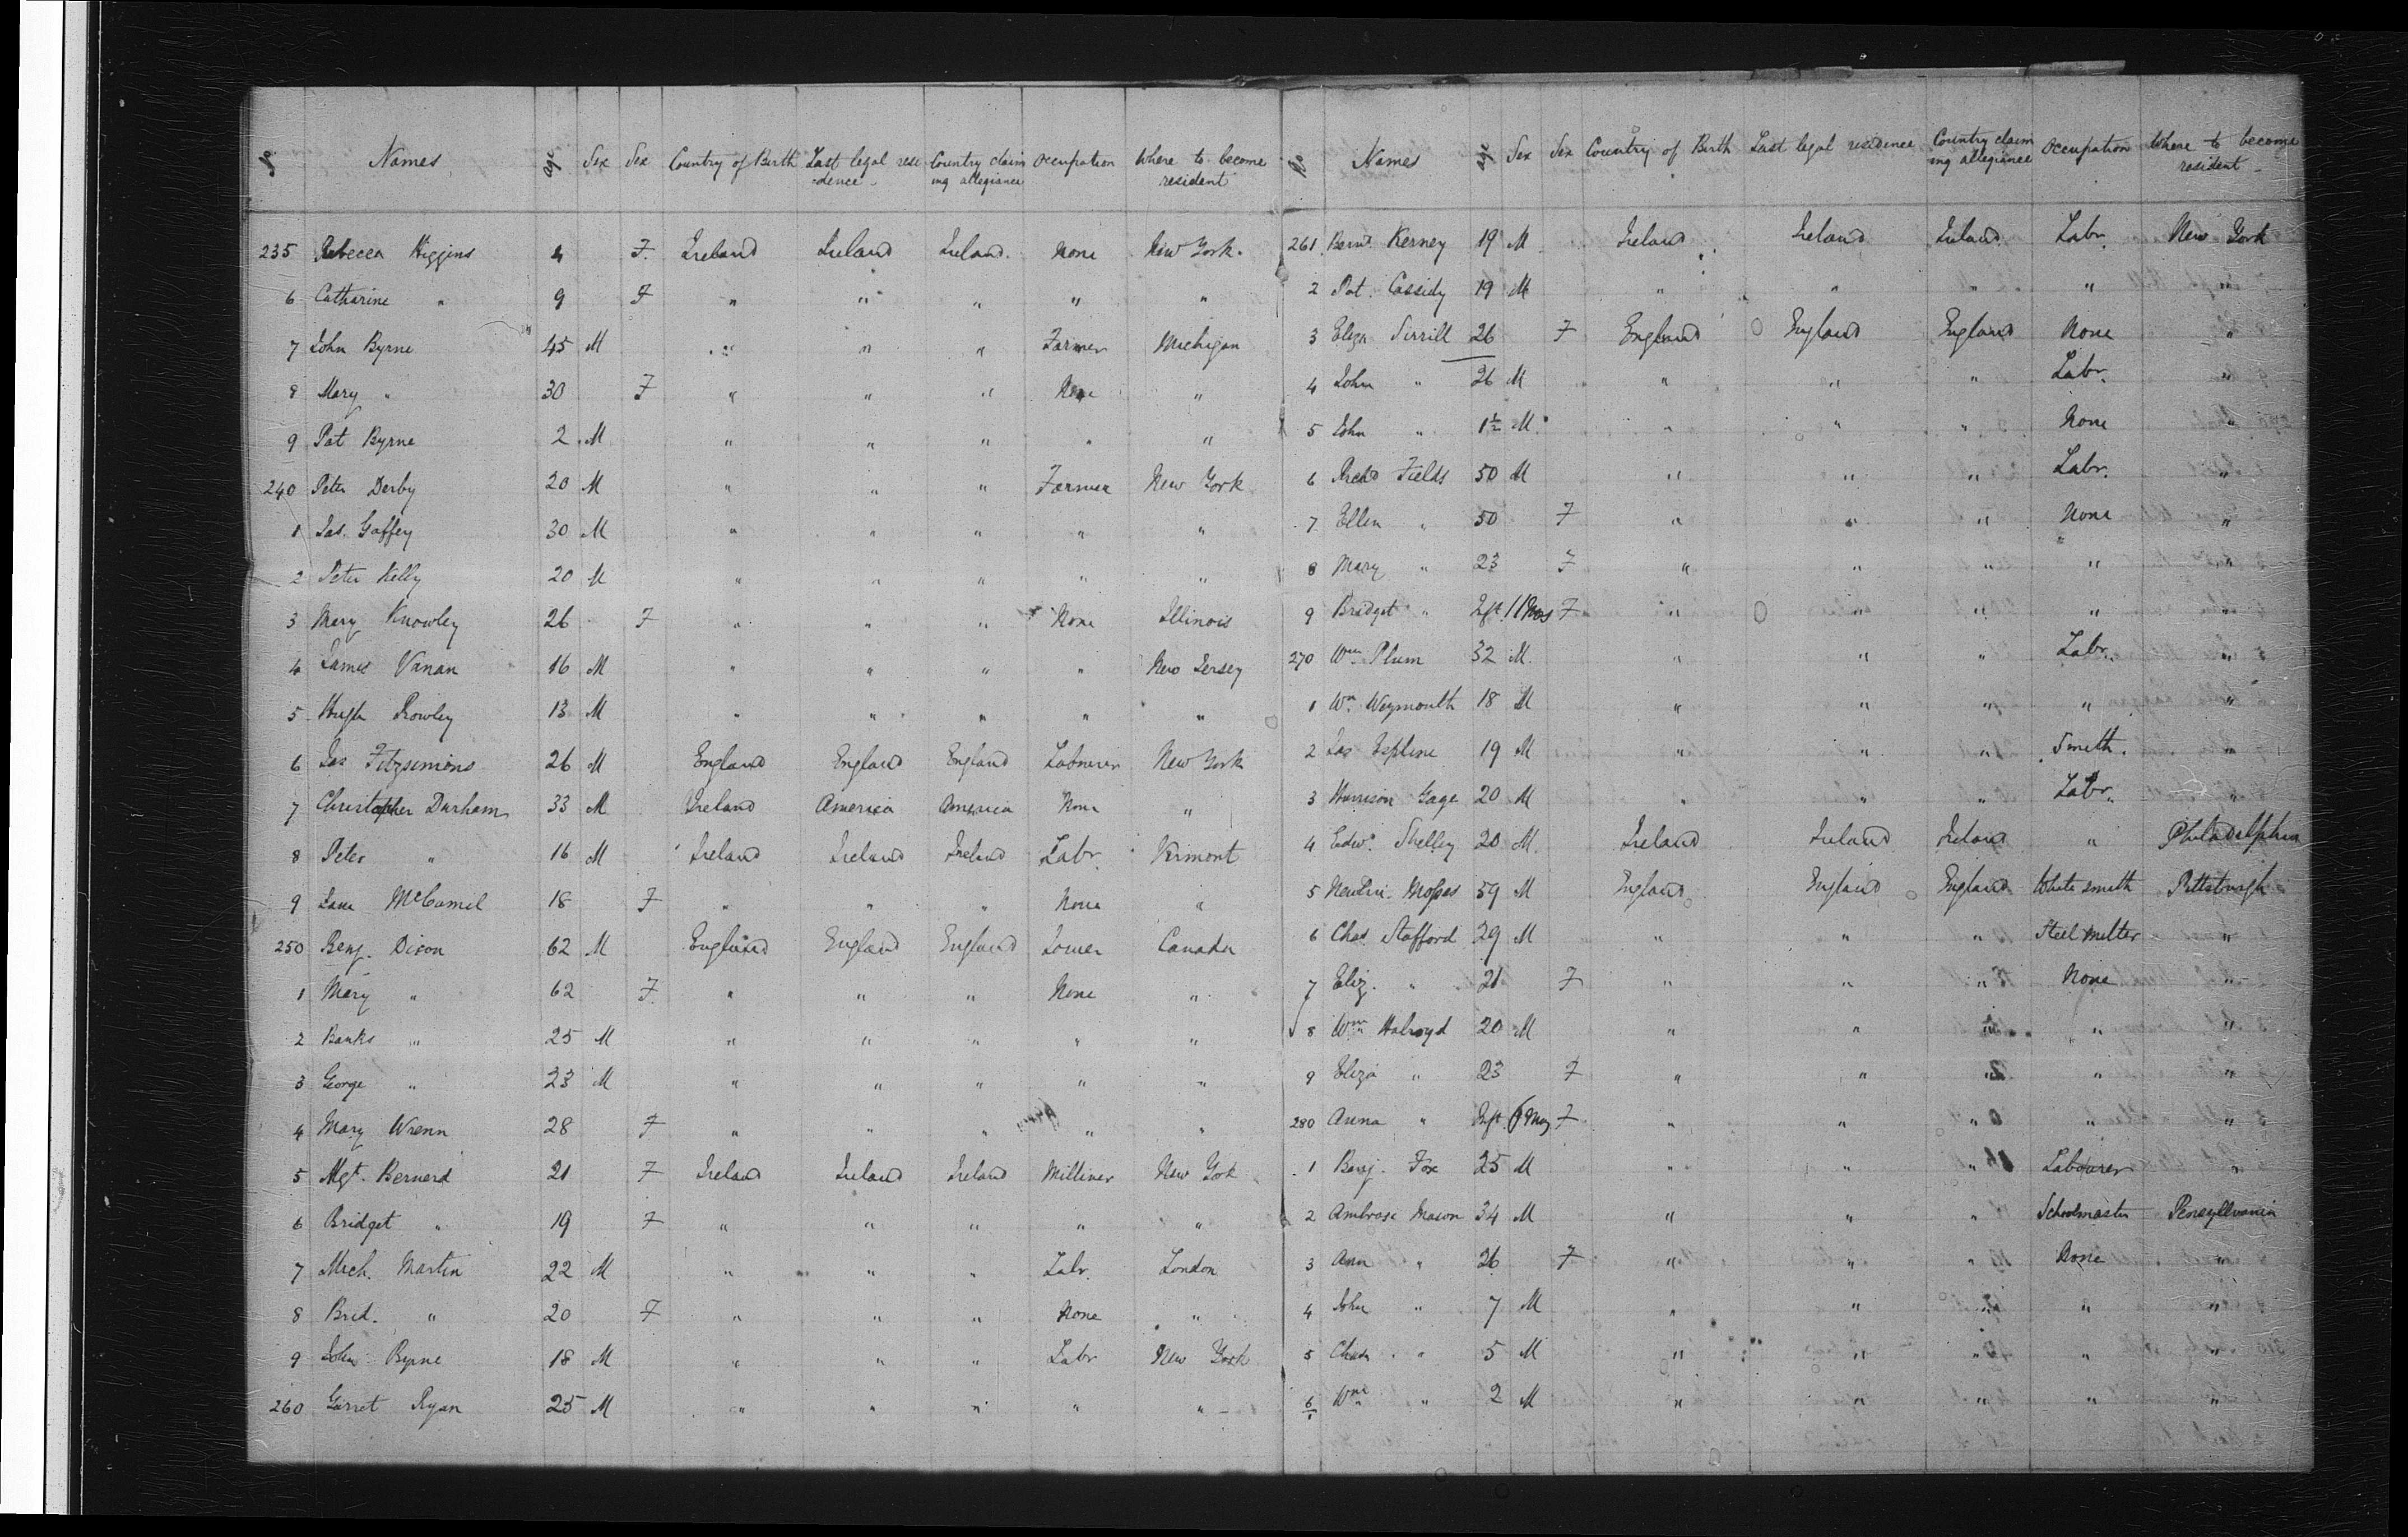 No Names Age Sex Sex Country of Birth Last legal resi-dence Country claiming allegiance Occupation Where to become resident
235 Rebecca Higgins 4 F. Ireland Ireland Ireland. None New York.
6 Catharine " 9 F " " " " "
7 John Byrne 45 M " " " Farmer Michigan
8 Mary " 30 F " " " None "
9 Pat Byrne 2 M " " " " "
240 Peter Derby 20 M " " " Farmer New York
1 Jas. Gaffey 30 M " " " " "
2 Peter Kelly 20 M " " " " "
3 Mary Knowley 26 F " " " None Illinois
4 James Vanan 16 M " " " " New Jersey
5 Hugh Rowley 13 M " " " " "
6 Jas Fitzsimons 26 M England England England Labourer New York
7 Christopher Durham 33 M Ireland America America None "
8 Peter " 16 M Ireland Ireland Ireland Labr. Vermont
9 Jane McCamel 18 F " " " None "
250 Benj. Dixon 62 M England England England Lower Canada
1 Mary " 62 F. " " " None "
2 Banks " 25 M " " " " "
3 George " 23 M " " " " "
4 Mary Wrenn 28 F " " " " "
5 Mgt. Bernard 21 F Ireland Ireland Ireland Milliner New York
6 Bridget " 19 F " " " " "
7 Mich. Martin 22 M " " " Labr. London
8 Brid. " 20 F " " " None "
9 John Byrne 18 M " " " Labr New York
260 Garret Ryan 25 M " " " " "
No Names Age Sex Sex Country of Birth Last legal residence Country claiming allegiance Occupation Where to become resident
261 Bernd. Kerney 19 M Ireland Ireland Ireland Labr. New York
2 Pat. Cassidy 19 M " " " " "
3 Eliza Sirrill 26 F England England England None "
4 John " 26 M " " " Labr. "
5 John " 1½ M. " " " None "
6 Richd Fields 50 M " " " Labr. "
7 Ellen " 50 F " " " None "
8 Mary " 23 F " " " " "
9 Bridget " Inft. 11 Mos F " " " " "
270 Wm. Plum 32 M. " " " Labr. "
1 Wm. Weymouth 18 M " " " " "
2 Jas 19 M " " " Smith. "
3 Harrison Gage 20 M " " " Labr. "
4 Edwd. Shelley 20 M. Ireland Ireland Ireland " Philadelphia
5 Mosses 59 M England England England White smith Pittsburgh
6 Chas Stafford 29 M " " " Steel Melter "
7 Eliz. " 21 F " " " None "
8 Wm. Holroyd 20 M " " " " "
9 Eliza " 23 F " " " " "
280 Anna " Inft. F " " " " "
1 Benj. Fox 25 M " " " Labourer "
2 Ambrose Mason 34 M " " " Schoolmaster Pensyllvania
3 Ann " 26 F " " " None "
4 John " 7 M " " " " "
5 Chas. " 5 M " " " " "
6 Wm. " 2 M " " " " "